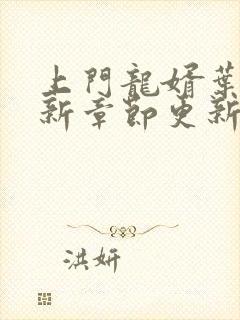 上門龍婿葉
新章節更新
洪妍